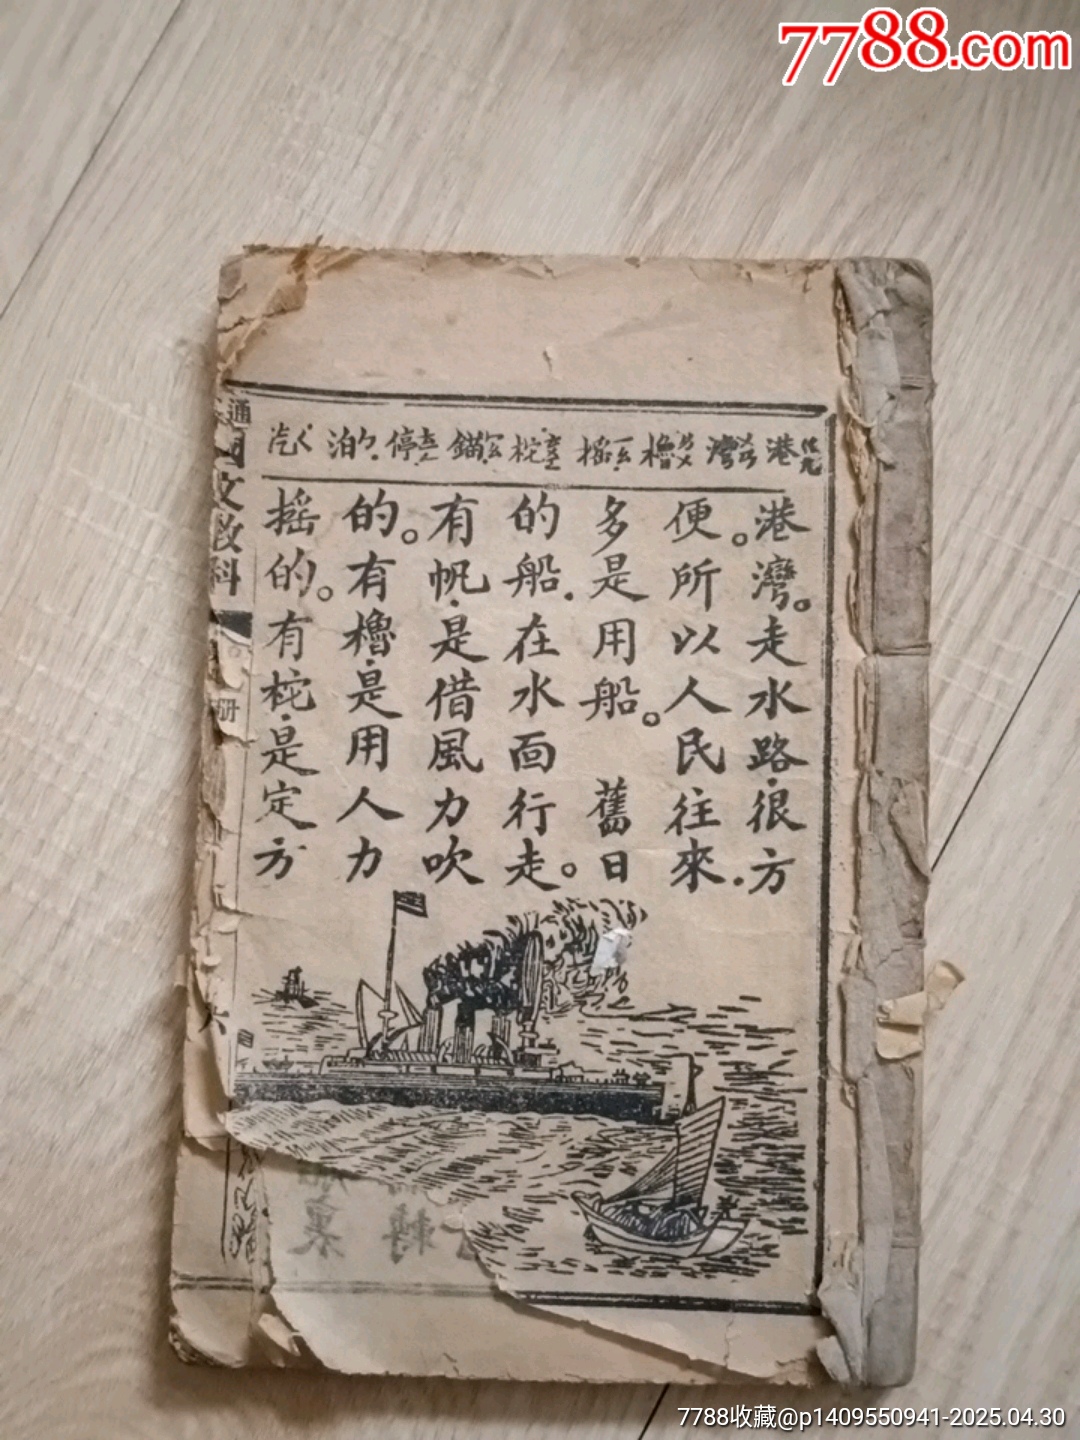 7788.com
港 灣 櫓 摇 柁 錨 停 泊 汽
港灣。走水路.很方
便。所以人民往來.
多是用船。 舊日
的船.在水面行走。
有帆.是借風力吹
的。有櫓.是用人力
摇的。有柁.是定方
通
國文教科
册
六
7788收藏@p1409550941-2025.04.30